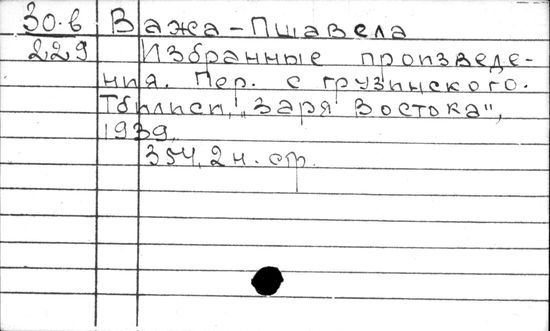 30.в Важа-Пшавела
229 Избранные произведе-
ния. Пер. с грузинского.
Тбилиси, „Заря Востока",
1939.
354, 2 н. стр.